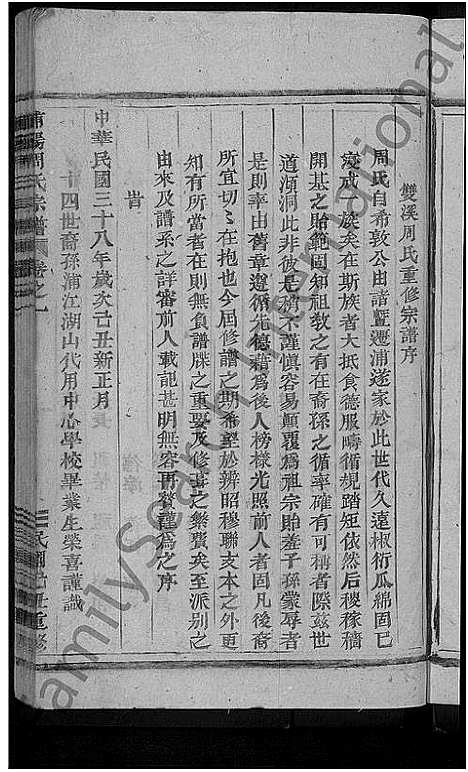 雙溪周氏重修宗譜序
周氏自希敦公由諸暨遷浦遂家於此世代久遠椒衍瓜綿固已
變成一族矣在斯族者大抵食德服疇循規踏矩依然后稷稼穡
開基之貽範固知祖敎之有在裔孫之循率確有可稱者際茲世
道澒洞此非彼是稍不謹慎容易顛覆爲祖宗貽羞子孫蒙辱者
是則率由舊章遵循先德藉爲後人榜樣光照前人者固凡後裔
所宜切切在抱也今屆修譜之期希望於辨昭穆聯支本之外更
知有所當者在則無負譜牒之重要及修葺之繁賾矣至派別之
由來及譜系之詳審前人載記甚明無容再贅謹爲之序
旹
中華民國三十八年歲次己丑新正月
十四世裔孫浦江湖山代用中心學校畢業生榮喜謹識
浦陽周氏宗譜 卷之一
民國己丑重修
FamilySearch International